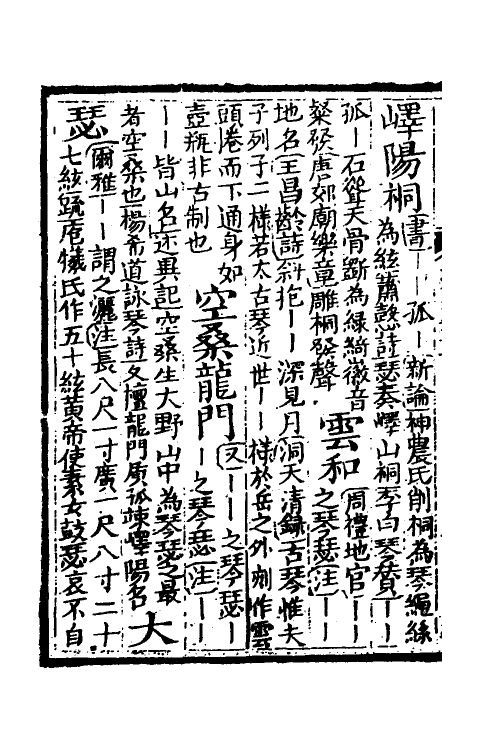 嶧陽桐
書｜｜孤｜新論神農氏削桐為琴繩絲
為絃蕭慤詩瑟奏嶧山桐李白琴賛｜｜
孤｜石聳天骨斵為緑綺徽音
粲發唐郊廟樂章雕桐發聲
雲和
周禮地官｜｜
之琴瑟注｜｜
地名王昌齡詩斜抱｜｜深見月洞天清錄古琴惟夫
子列子二様若太古琴近世｜｜様於岳之外刻作雲
頭捲而下通身如
壺瓶非古制也
空桑龍門
又｜｜｜之琴瑟｜
｜之琴瑟注｜｜
｜｜皆山名述異記空桑生大野山中為琴瑟之最
者空桑也楊希道詠琴詩久擅龍門质孤竦嶧陽名
大
瑟
爾雅｜｜謂之灑注長八尺一寸廣一尺八寸二十
七絃䟽庖犧氏作五十絃黄帝使素女鼓瑟哀不自